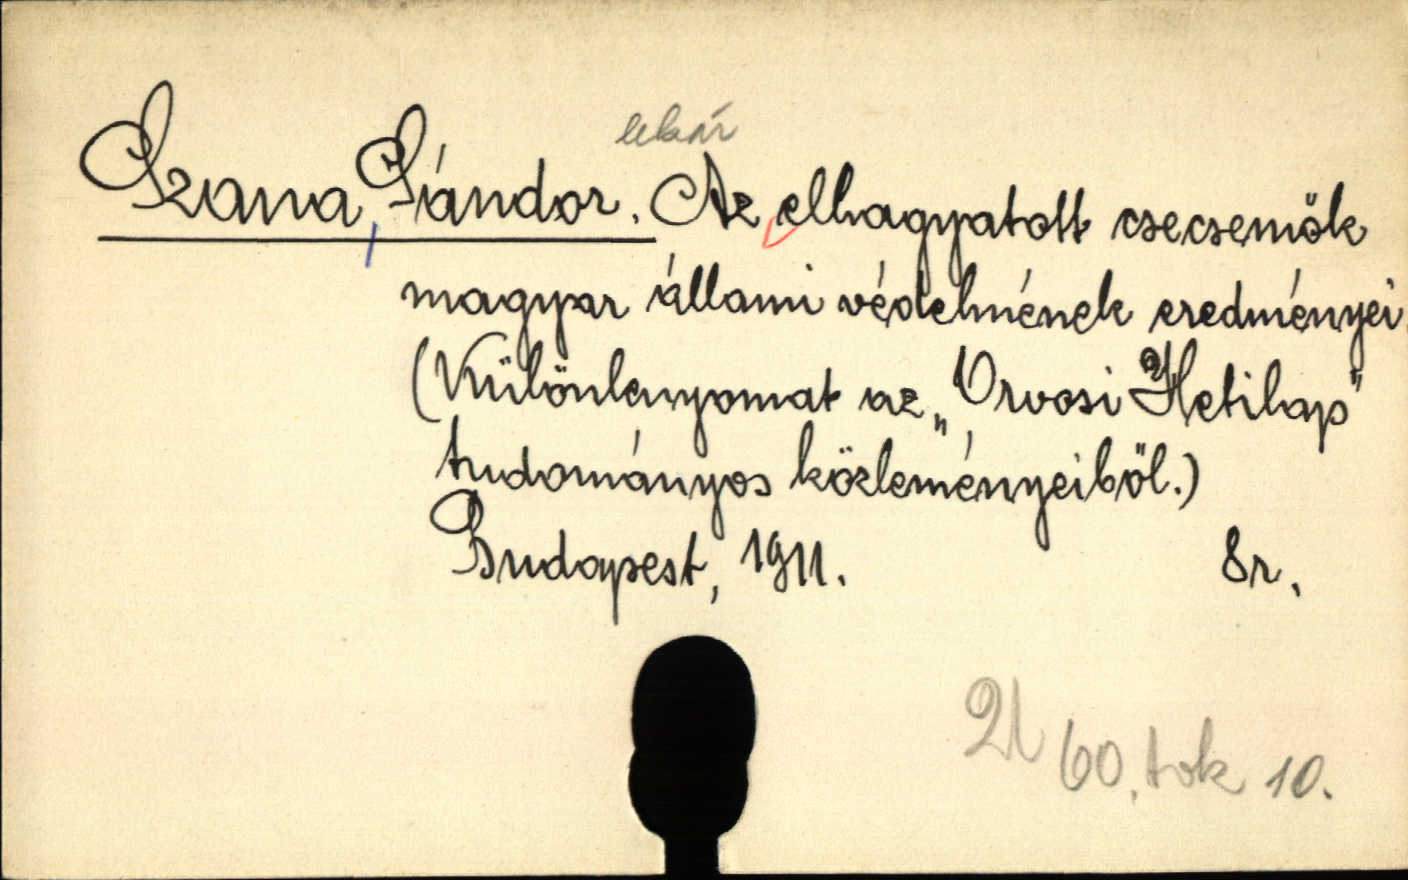 lekár
Szana, Sándor. Az elhagyatott csecsemők
magyar állami védelmének eredményei.
(Különlenyomat az „Orvosi Hetilap"
tudományos közleményeiből.)
Budapest, 1911. 8r.
60. tok 10.